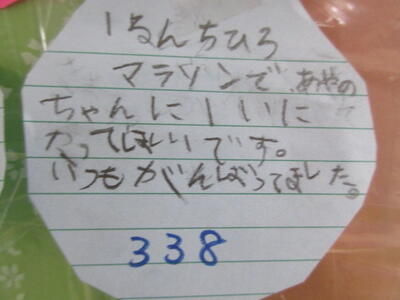 まんちひろ
マラソンで、あやの
ちゃんに1いに
なってほしいです。
いつもがんばってました。
338